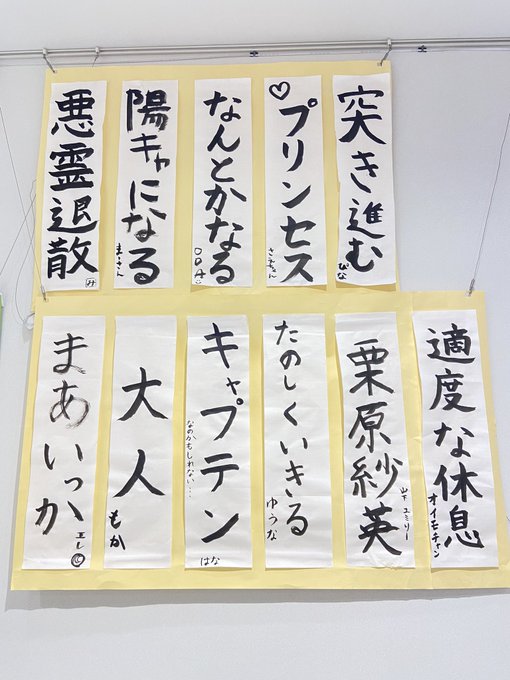 突き進む
ぴな
♡プリンセス
さぁちゃん
なんとかなる
陽キャになる
まぁさん
悪霊退散
み
適度な休息
オイモチャン
栗原紗英
山下エミリー
たのしくいきる
ゆうな
キャプテン
なのかもしれない...
はな
大人
もか
まあいっか
エレ